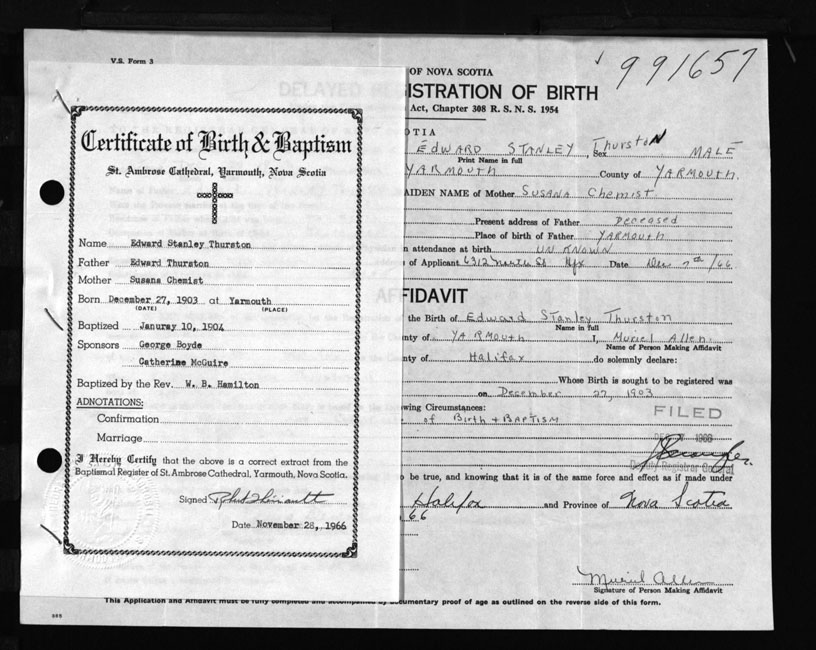 V.S. Form 3
991657
OF NOVA SCOTIA
DELAYED REGISTRATION OF BIRTH
Act, Chapter 308 R. S. N. S. 1954
OTIA
EDWARD STANLEY Thurston, Sex MALE
Print Name in full
YARMOUTH County of YARMOUTH.
AIDEN NAME of Mother SUSANA Chemist
Present address of Father Deceased
Place of birth of Father YARMOUTH
n attendance at birth UNKNOWN
s of Applicant 6312 North St Hfx Date Dec 7th/66
AFFIDAVIT
the Birth of Edward Stanley Thurston
Name in full
nty of YARMOUTH I, Muriel Allen
Name of Person Making Affidavit
nty of Halifax do solemnly declare:
Whose Birth is sought to be registered was
on December 27, 1903
wing Circumstances:
of Birth + BAPTISM
FILED
Deputy Registrar General
o be true, and knowing that it is of the same force and effect as if made under
Halifax and Province of Nova Scotia
66
Muriel Allen
Signature of Person Making Affidavit
This Application and Affidavit must be fully completed and accompanied by documentary proof of age as outlined on the reverse side of this form.
Certificate of Birth & Baptism
St. Ambrose Cathedral, Yarmouth, Nova Scotia
Name Edward Stanley Thurston
Father Edward Thurston
Mother Susana Chemist
Born December 27, 1903 at Yarmouth
(DATE) (PLACE)
Baptized Januray 10, 1904
Sponsors George Boyde
Catherine McGuire
Baptized by the Rev. W. B. Hamilton
ADNOTATIONS:
Confirmation
Marriage
I Hereby Certify that the above is a correct extract from the
Baptismal Register of St. Ambrose Cathedral, Yarmouth, Nova Scotia.
Signed
Date November 28, 1966